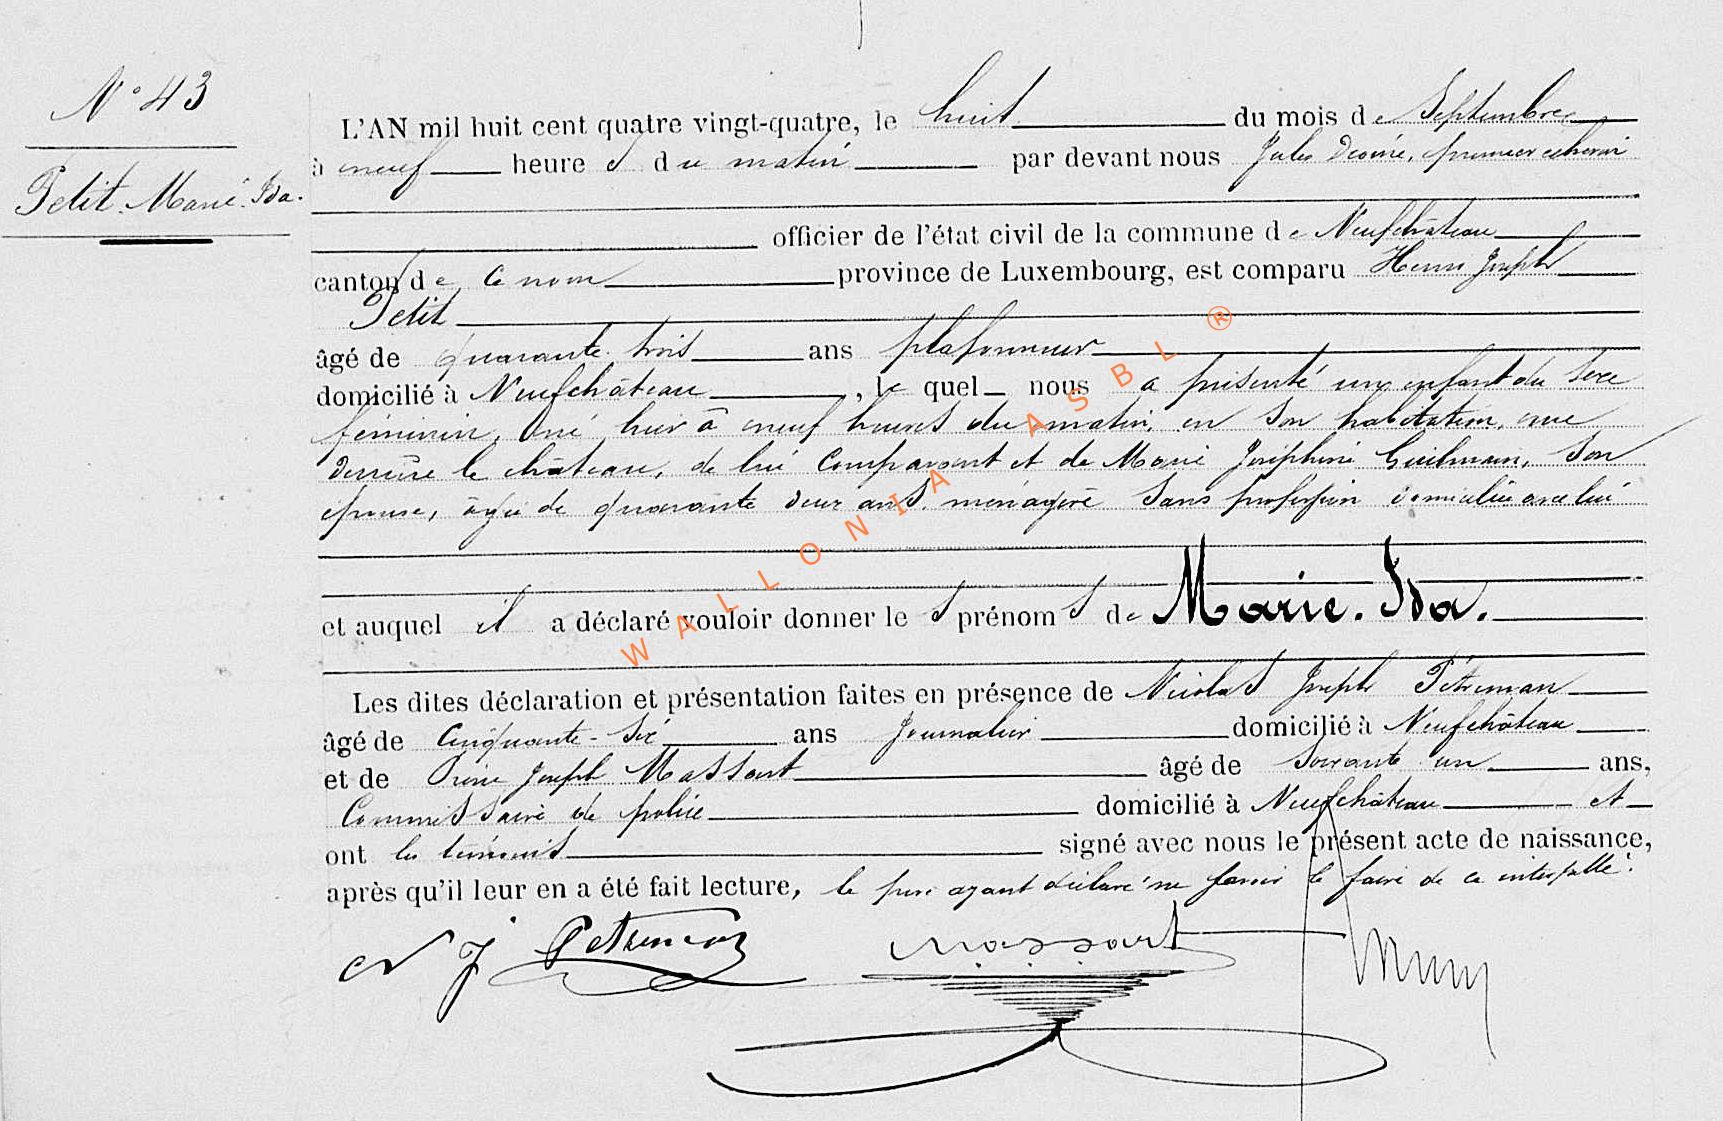 N° 43
Petit Marie Ida.
L'AN mil huit cent quatre vingt-quatre, le huit du mois de Septembre
à neuf heures du matin par devant nous Jules premier échevin
officier de l'état civil de la commune de Neufchâteau
canton de ce nom province de Luxembourg, est comparu Henri Joseph
Petit
âgé de quarante trois ans plafonneur
domicilié à Neufchâteau, le quel nous a présenté un enfant du sexe
féminin, né hier à neuf heures du matin, en son habitation, rue
derrière le château, de lui comparant et de Marie Joséphine Guilmain, son
épouse, âgée de quarante deux ans, ménagère sans profession domiciliée avec lui
et auquel il a déclaré vouloir donner les prénoms de Marie. Ida.
Les dites déclaration et présentation faites en présence de Nicolas Joseph Pétreman
âgé de Cinquante-six ans Journalier domicilié à Neufchâteau
et de Joseph Massart âgé de soixante un ans,
Commissaire de police domicilié à Neufchâteau et
ont les témoins signé avec nous le présent acte de naissance,
après qu'il leur en a été fait lecture, le père ayant déclaré ne savoir le faire de ce interpellé.
N J Petreman massart
WALLONIA ASBL ®